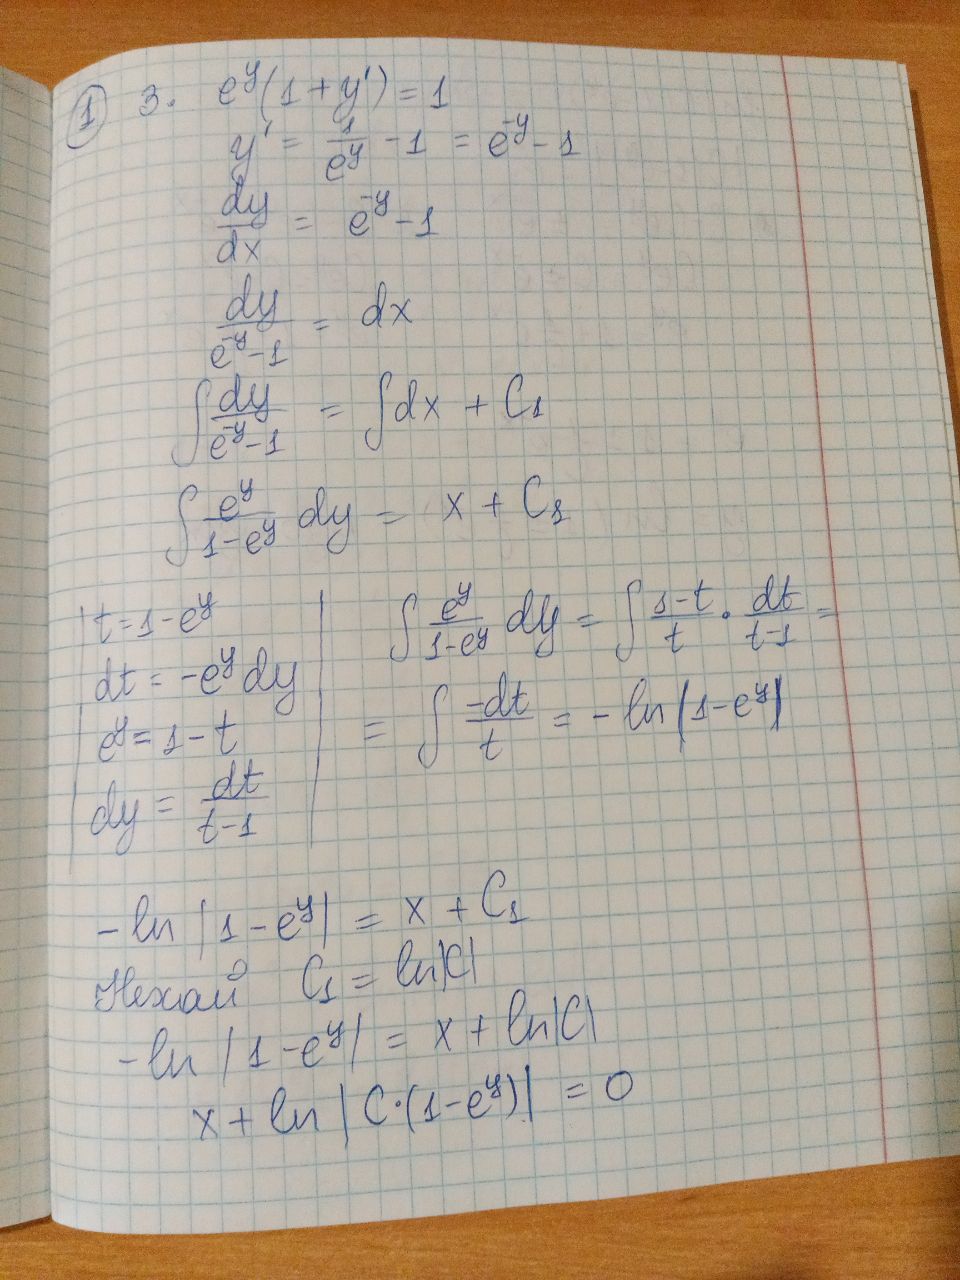 ① 3. e^y(1+y')=1
y' = 1/e^y - 1 = e^{-y} - 1
dy/dx = e^{-y} - 1
dy/(e^{-y} - 1) = dx
∫ dy/(e^{-y} - 1) = ∫dx + C₁
∫ e^y/(1-e^y) dy = x + C₁
t = 1-e^y
dt = -e^y dy
e^y = 1-t
dy = dt/(t-1)
∫ e^y/(1-e^y) dy = ∫ (1-t)/t · dt/(t-1) =
= ∫ -dt/t = -ln|1-e^y|
-ln|1-e^y| = x + C₁
Нехай C₁ = ln|C|
-ln|1-e^y| = x + ln|C|
x + ln|C·(1-e^y)| = 0